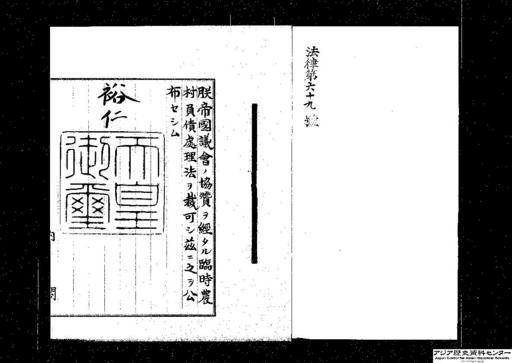 法律第六十九號
朕帝國議會ノ協贊ヲ經タル臨時農
村負債處理法ヲ裁可シ茲ニ之ヲ公
布セシム
裕仁
天皇
御璽
内
閣
アジア歴史資料センター
Japan Center for Asian Historical Records